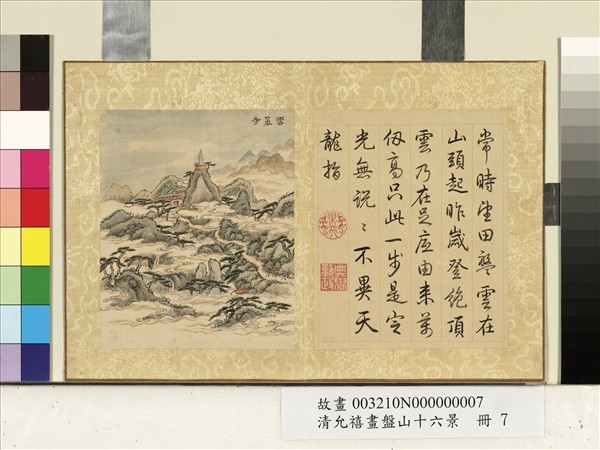 常時望田盤雲在
山頭起昨歲登絶頂
雲乃在足底由来萬
仭高只此一步是定
光無説〻不異天
龍指
雲罩寺
故畫 003210N000000007
清允禧畫盤山十六景 冊 7